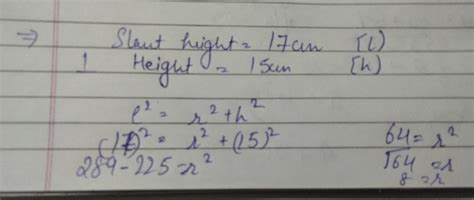 ⇒ Slant height = 17cm [l]
1 Height = 15cm [h]
l² = r² + h²
(17)² = r² + (15)²
289 - 225 = r²
64 = r²
√64 = r
8 = r